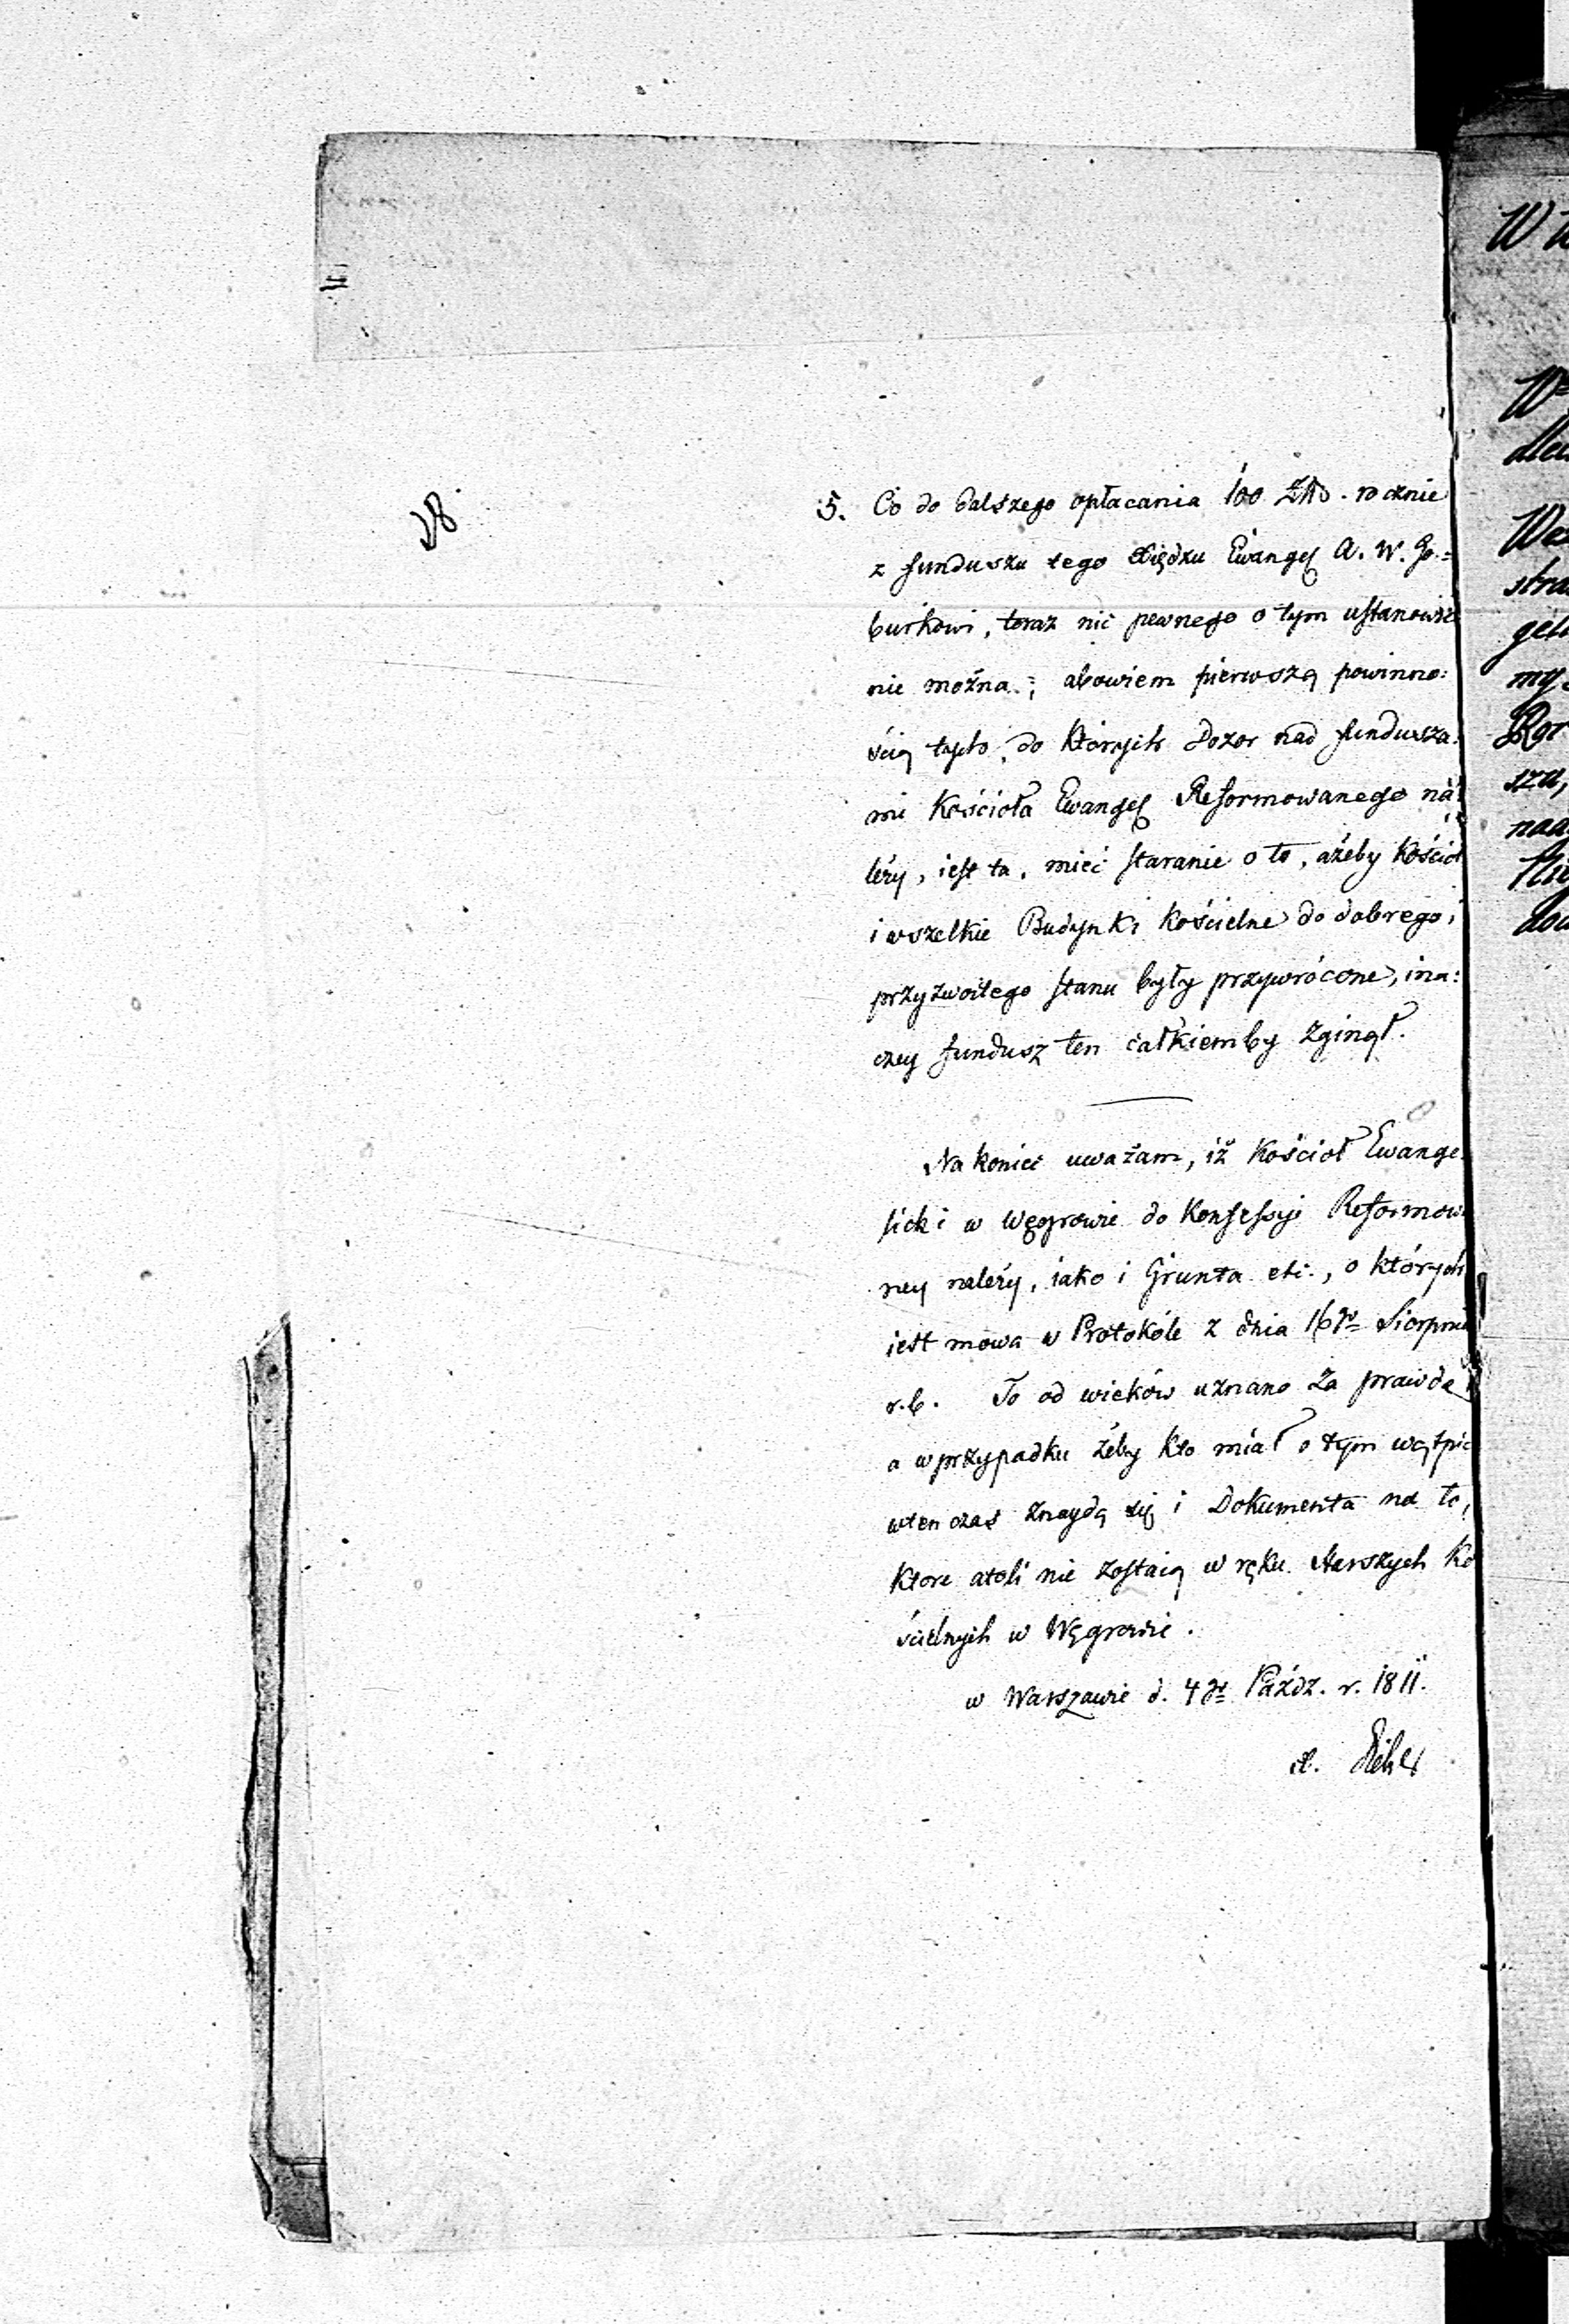 28
5. Co do dalszego opłacania 100 Złt. rocznie
z funduszu tego Xiędzu Ewangel A. W. Go=
burkowi, teraz nic pewnego o tym ustanowić
nie można; albowiem pierwszą powinno:
ścią tych, do których Dozor nad fundusza:
mi Kościoła Ewangel Reformowanego na
leży, iest ta, mieć staranie o to, ażeby Kościoł
i wszelkie Budynki kościelne do dobrego i
przyzwoitego stanu były przywrócone, ina:
czey fundusz ten całkiemby zginął.
Na koniec uważam, iż Kościoł Ewange
licki w Węgrowie do Konfessyi Reformow
ney należy, iako i Grunta etc., o których
iest mowa w Protokóle z dnia 16go Sierpnia
r.b. To od wieków uznano za prawdę
a w przypadku żeby kto miał o tym wątpić
wten czas znaydą się i Dokumenta na to,
ktore atoli nie zostaią w ręku Starszych Ko
ścielnych w Węgrowie.
w Warszawie d. 4go Paźdz. r. 1811.
W
W
Wa
stra
gel
my
szu,
naa